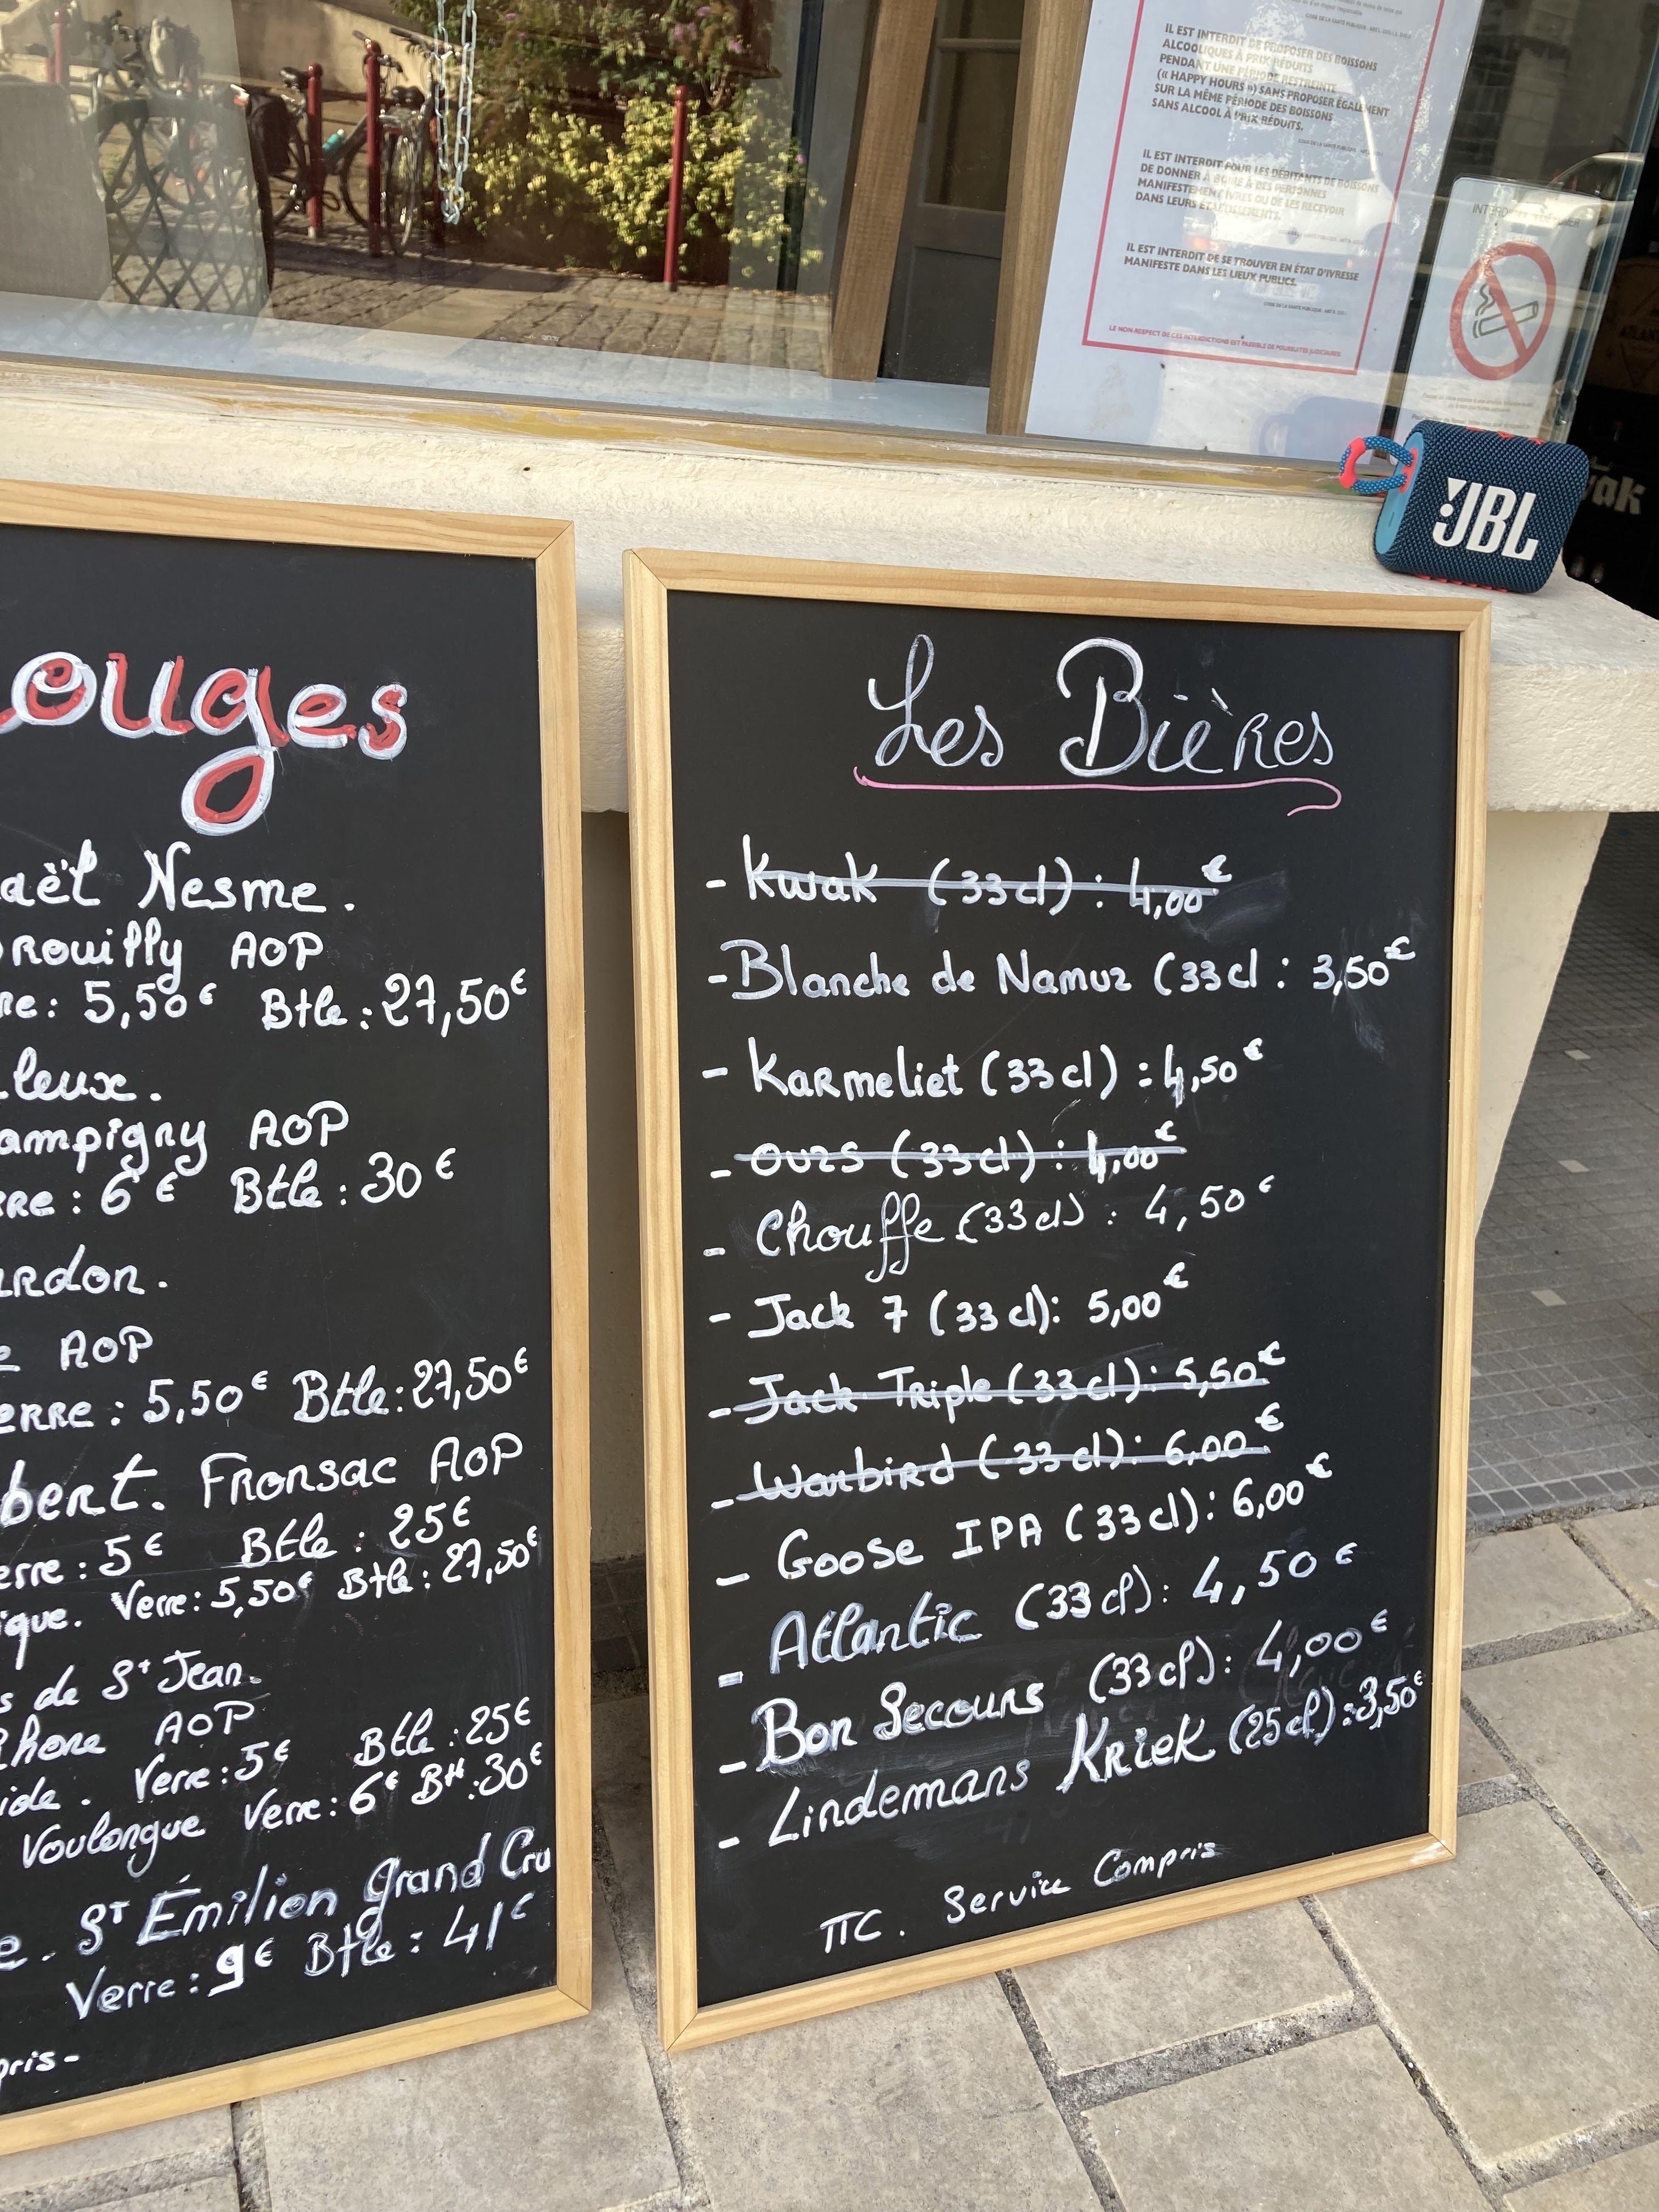 IL EST INTERDIT DE PROPOSER DES BOISSONS
ALCOOLIQUES À PRIX RÉDUITS
PENDANT UNE PÉRIODE RESTREINTE
(« HAPPY HOURS ») SANS PROPOSER ÉGALEMENT
SUR LA MÊME PÉRIODE DES BOISSONS
SANS ALCOOL À PRIX RÉDUITS.
IL EST INTERDIT POUR LES DÉBITANTS DE BOISSONS
DE DONNER À BOIRE À DES PERSONNES
MANIFESTEMENT IVRES OU DE LES RECEVOIR
DANS LEURS ÉTABLISSEMENTS.
IL EST INTERDIT DE SE TROUVER EN ÉTAT D'IVRESSE
MANIFESTE DANS LES LIEUX PUBLICS.
LE NON-RESPECT DE CES INTERDICTIONS EST PASSIBLE DE POURSUITES JUDICIAIRES.
JBL
ouges
aël Nesme.
rouilly AOP
re: 5,50€ Btle: 27,50€
leux.
ampigny AOP
rre: 6€ Btle: 30€
ardon.
e AOP
erre: 5,50€ Btle: 27,50€
bert. Fronsac AOP
erre: 5€ Btle: 25€
ique. Verre: 5,50€ Btle: 27,50€
s de St Jean.
Rhone AOP
ide. Verre: 5€ Btle: 25€
Voulongue Verre: 6€ Btl: 30€
e. ST Émilion grand Cru
Verre: 9€ Btle: 41€
pris-
Les Bières
- Kwak (33cl): 4,00€
- Blanche de Namur (33cl : 3,50€
- Karmeliet (33cl) : 4,50€
- Ours (33cl) : 4,00€
- Chouffe (33cl) : 4,50€
- Jack 7 (33cl): 5,00€
- Jack Triple (33cl): 5,50€
- Warbird (33cl): 6,00€
- Goose IPA (33cl): 6,00€
- Atlantic (33cl): 4,50€
- Bon Secours (33cl): 4,00€
- Lindemans Kriek (25cl): 3,50€
TTC. Service Compris